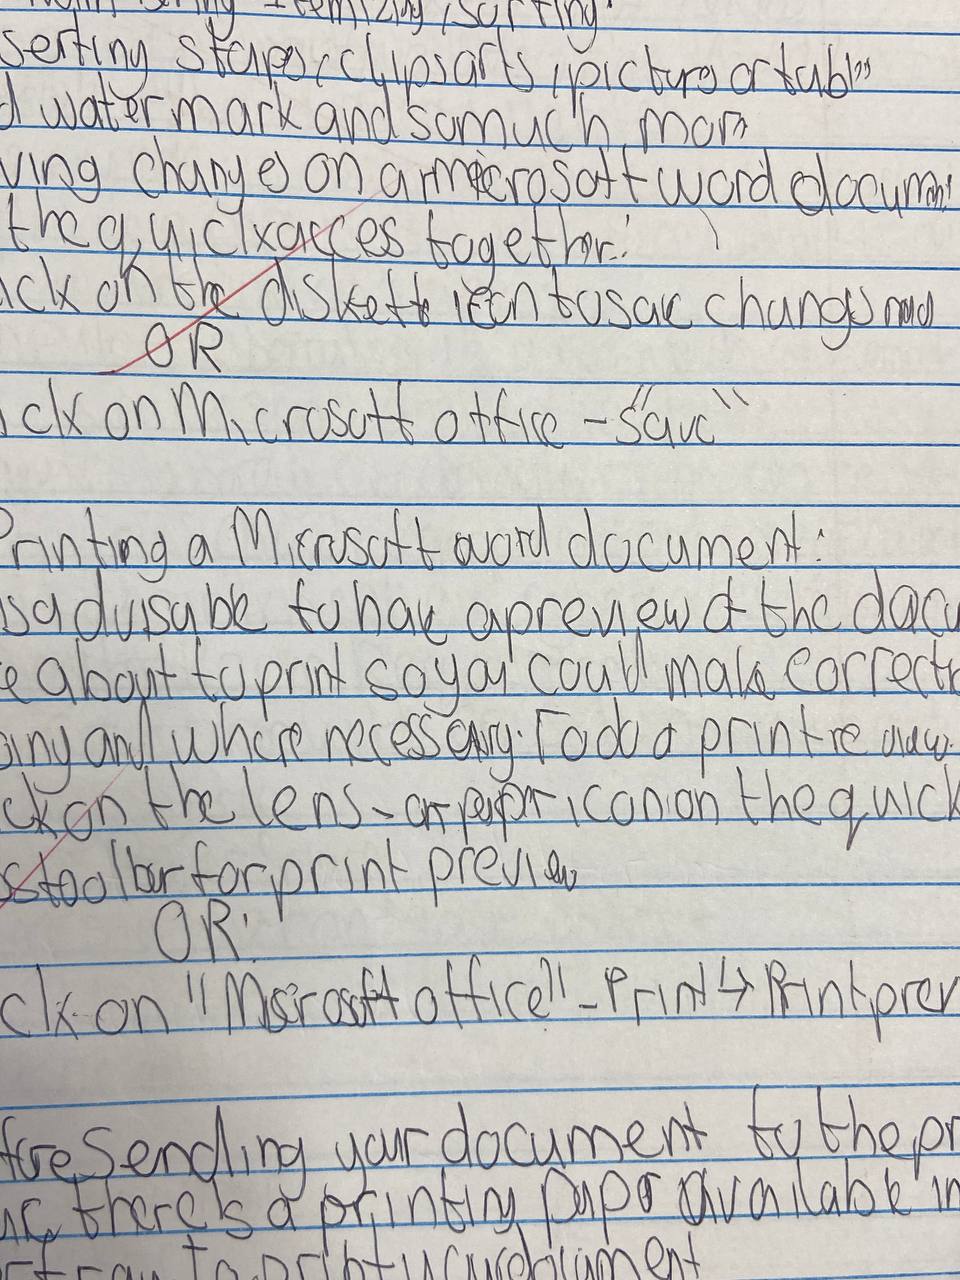 serting staps, clipsarts, picturs or tabl
d watermark and somuch mor
ving changes on a microsoft word docum
the quick acces together:
ick on the diskett icon to sav changs
OR
ick on Microsoft office - "Save"
Printing a Microsoft word document:
s advisable to have a preview of the docu
e about to print so you could make correct
any and where necessary. To do a print
ck on the lens - on paper icon on the quick
s toolbar for print preview
OR:
ck on "Microsoft office" - Print ↳ Print prev
fore sending your document to the pr
there's a printing paper available in
to print your document